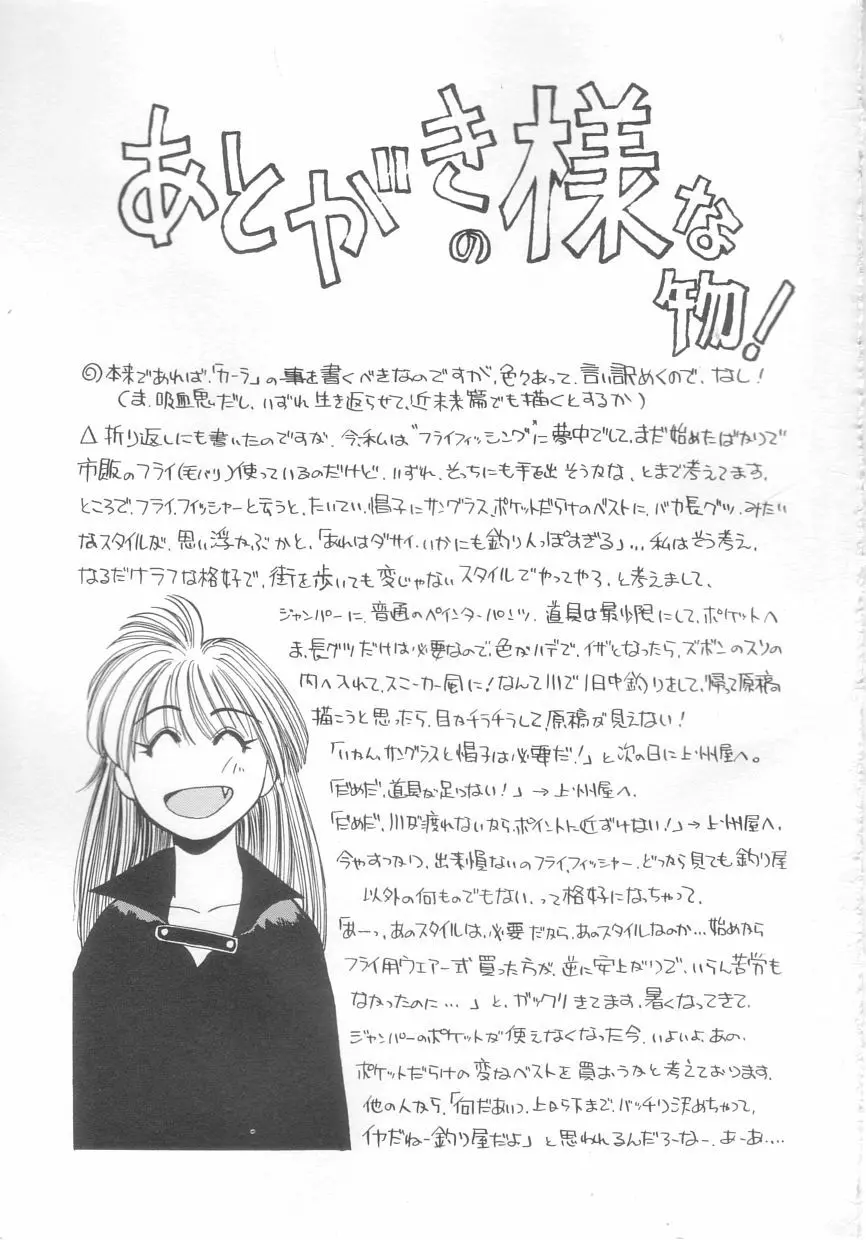 あとがきの様な物!
◎本来であれば、「カーラ」の事を書くべきなのですが、色々あって、言い訳めくので、なし!
(ま、吸血鬼だし、いずれ生き返らせて、近未来篇でも描くとするか)
△折り返しにも書いたのですが、今、私は"フライフィッシング"に夢中でして、まだ始めたばかりで
市販のフライ(毛バリ)使っているのだけど、いずれ、そっちにも手を出そうかな、とまで考えてます。
ところで、フライ、フィッシャーと云うと、たいてい、帽子にサングラス、ポケットだらけのベストに、バカ長グツ、みたい
なスタイルが、思い浮かぶかと、「あれはダサイ、いかにも釣り人っぽすぎる」…私はそう考え、
なるだけラフな格好で、街を歩いても変じゃないスタイルでやってやろ、と考えまして、
ジャンパーに、普通のペインターパンツ、道具は最少限にして、ポケットへ
ま、長グツだけは必要なので、色がハデで、イザとなったら、ズボンのスソの
内へ入れて、スニーカー風に!なんて川で1日中釣りまして、帰って原稿
描こうと思ったら、目がチラチラして!原稿が見えない!
「いかん、サングラスと帽子は必要だ!」と次の日に上州屋へ。
「だめだ、道具が足らない!」→上州屋へ、
「だめだ、川が渡れないなら、ポイントに近ずけない!」→上州屋へ、
今やすっかり、出来損ないのフライ、フィッシャー、どっから見ても釣り屋
以外の何ものでもない、って格好になっちゃって、
「あーっ、あのスタイルは、必要だから、あのスタイルなのか…始めから
フライ用ウェアー式買った方が、逆に安上がりで、いらん苦労も
なかったのに…」と、ガックリきてます、暑くなってきて、
ジャンパーのポケットが使えなくなった今、いよいよ、あの、
ポケットだらけの変なベストを買おうかと考えております。
他の人なら、「何だあいつ、上から下まで、バッチリ決めちゃって、
イヤだねー釣り屋だよ」と思われるんだろーなー、あーあ….